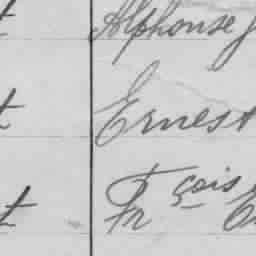 Alphonse
Ernest
Frçois